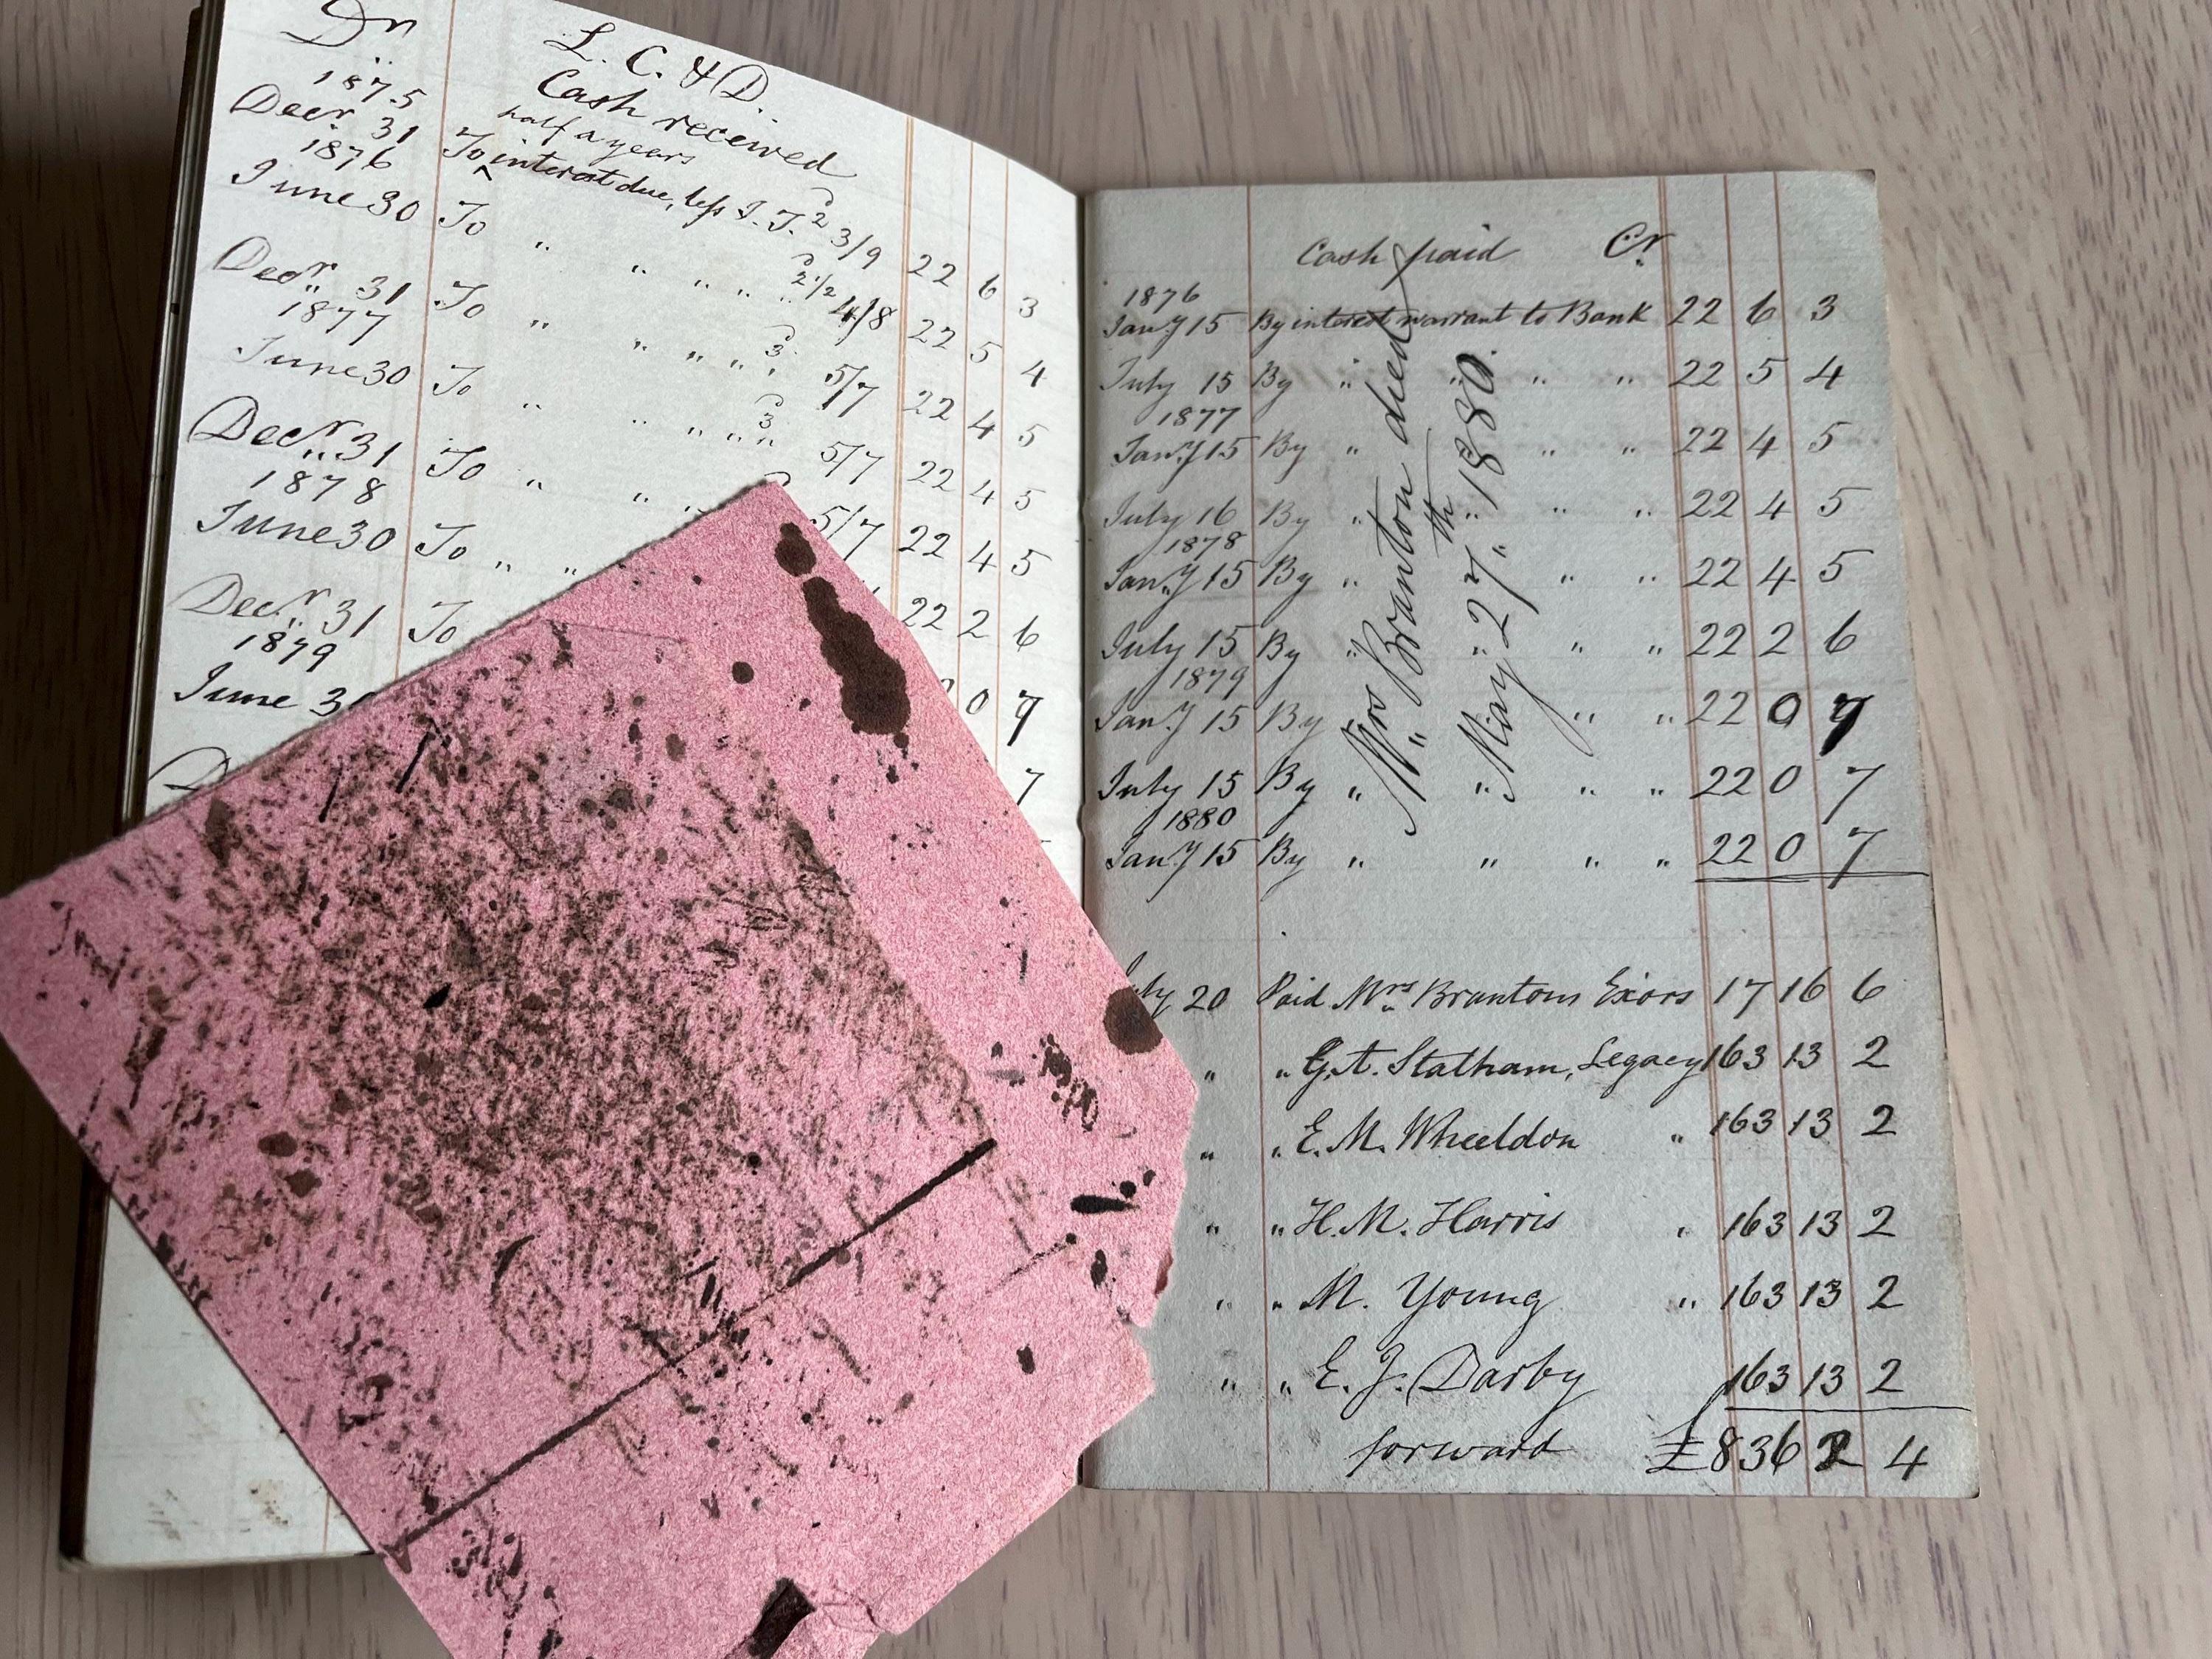 Dr
L. C. & D.
Cash received
1875
half a years
Decr 31 To ^ interest due, less I. T. 2 3/9 22 6 3
1876
June 30 To " " " " 2 1/2 4/8 22 5 4
Decr 31 To " " " " 3 5/7 22 4 5
1877
June 30 To " " " " 3 5/7 22 4 5
Decr 31 To " " 5/7 22 4 5
1878
June 30 To " " 22 2 6
Decr 31 To 0 7
1879
June 3 7
Cash paid Cr
1876
Jany 15 By interest warrant to Bank 22 6 3
July 15 By " " " " 22 5 4
1877
Jany 15 By " " " 22 4 5
July 16 By " " " " 22 4 5
1878
Jany 15 By " " " 22 4 5
July 15 By " " " " 22 2 6
1879
Jany 15 By " " 22 0 7
July 15 By " " " " 22 0 7
1880
Jany 15 By " " " " 22 0 7
Mrs Branton died
May 27th 1880
July 20 Paid Mrs Brantons Exors 17 16 6
" " G. A. Statham, Legacy 163 13 2
" " E. M. Wheeldon " 163 13 2
" " H. M. Harris " 163 13 2
" " M. Young " 163 13 2
" " E. J. Darby 163 13 2
forward £836 2 4